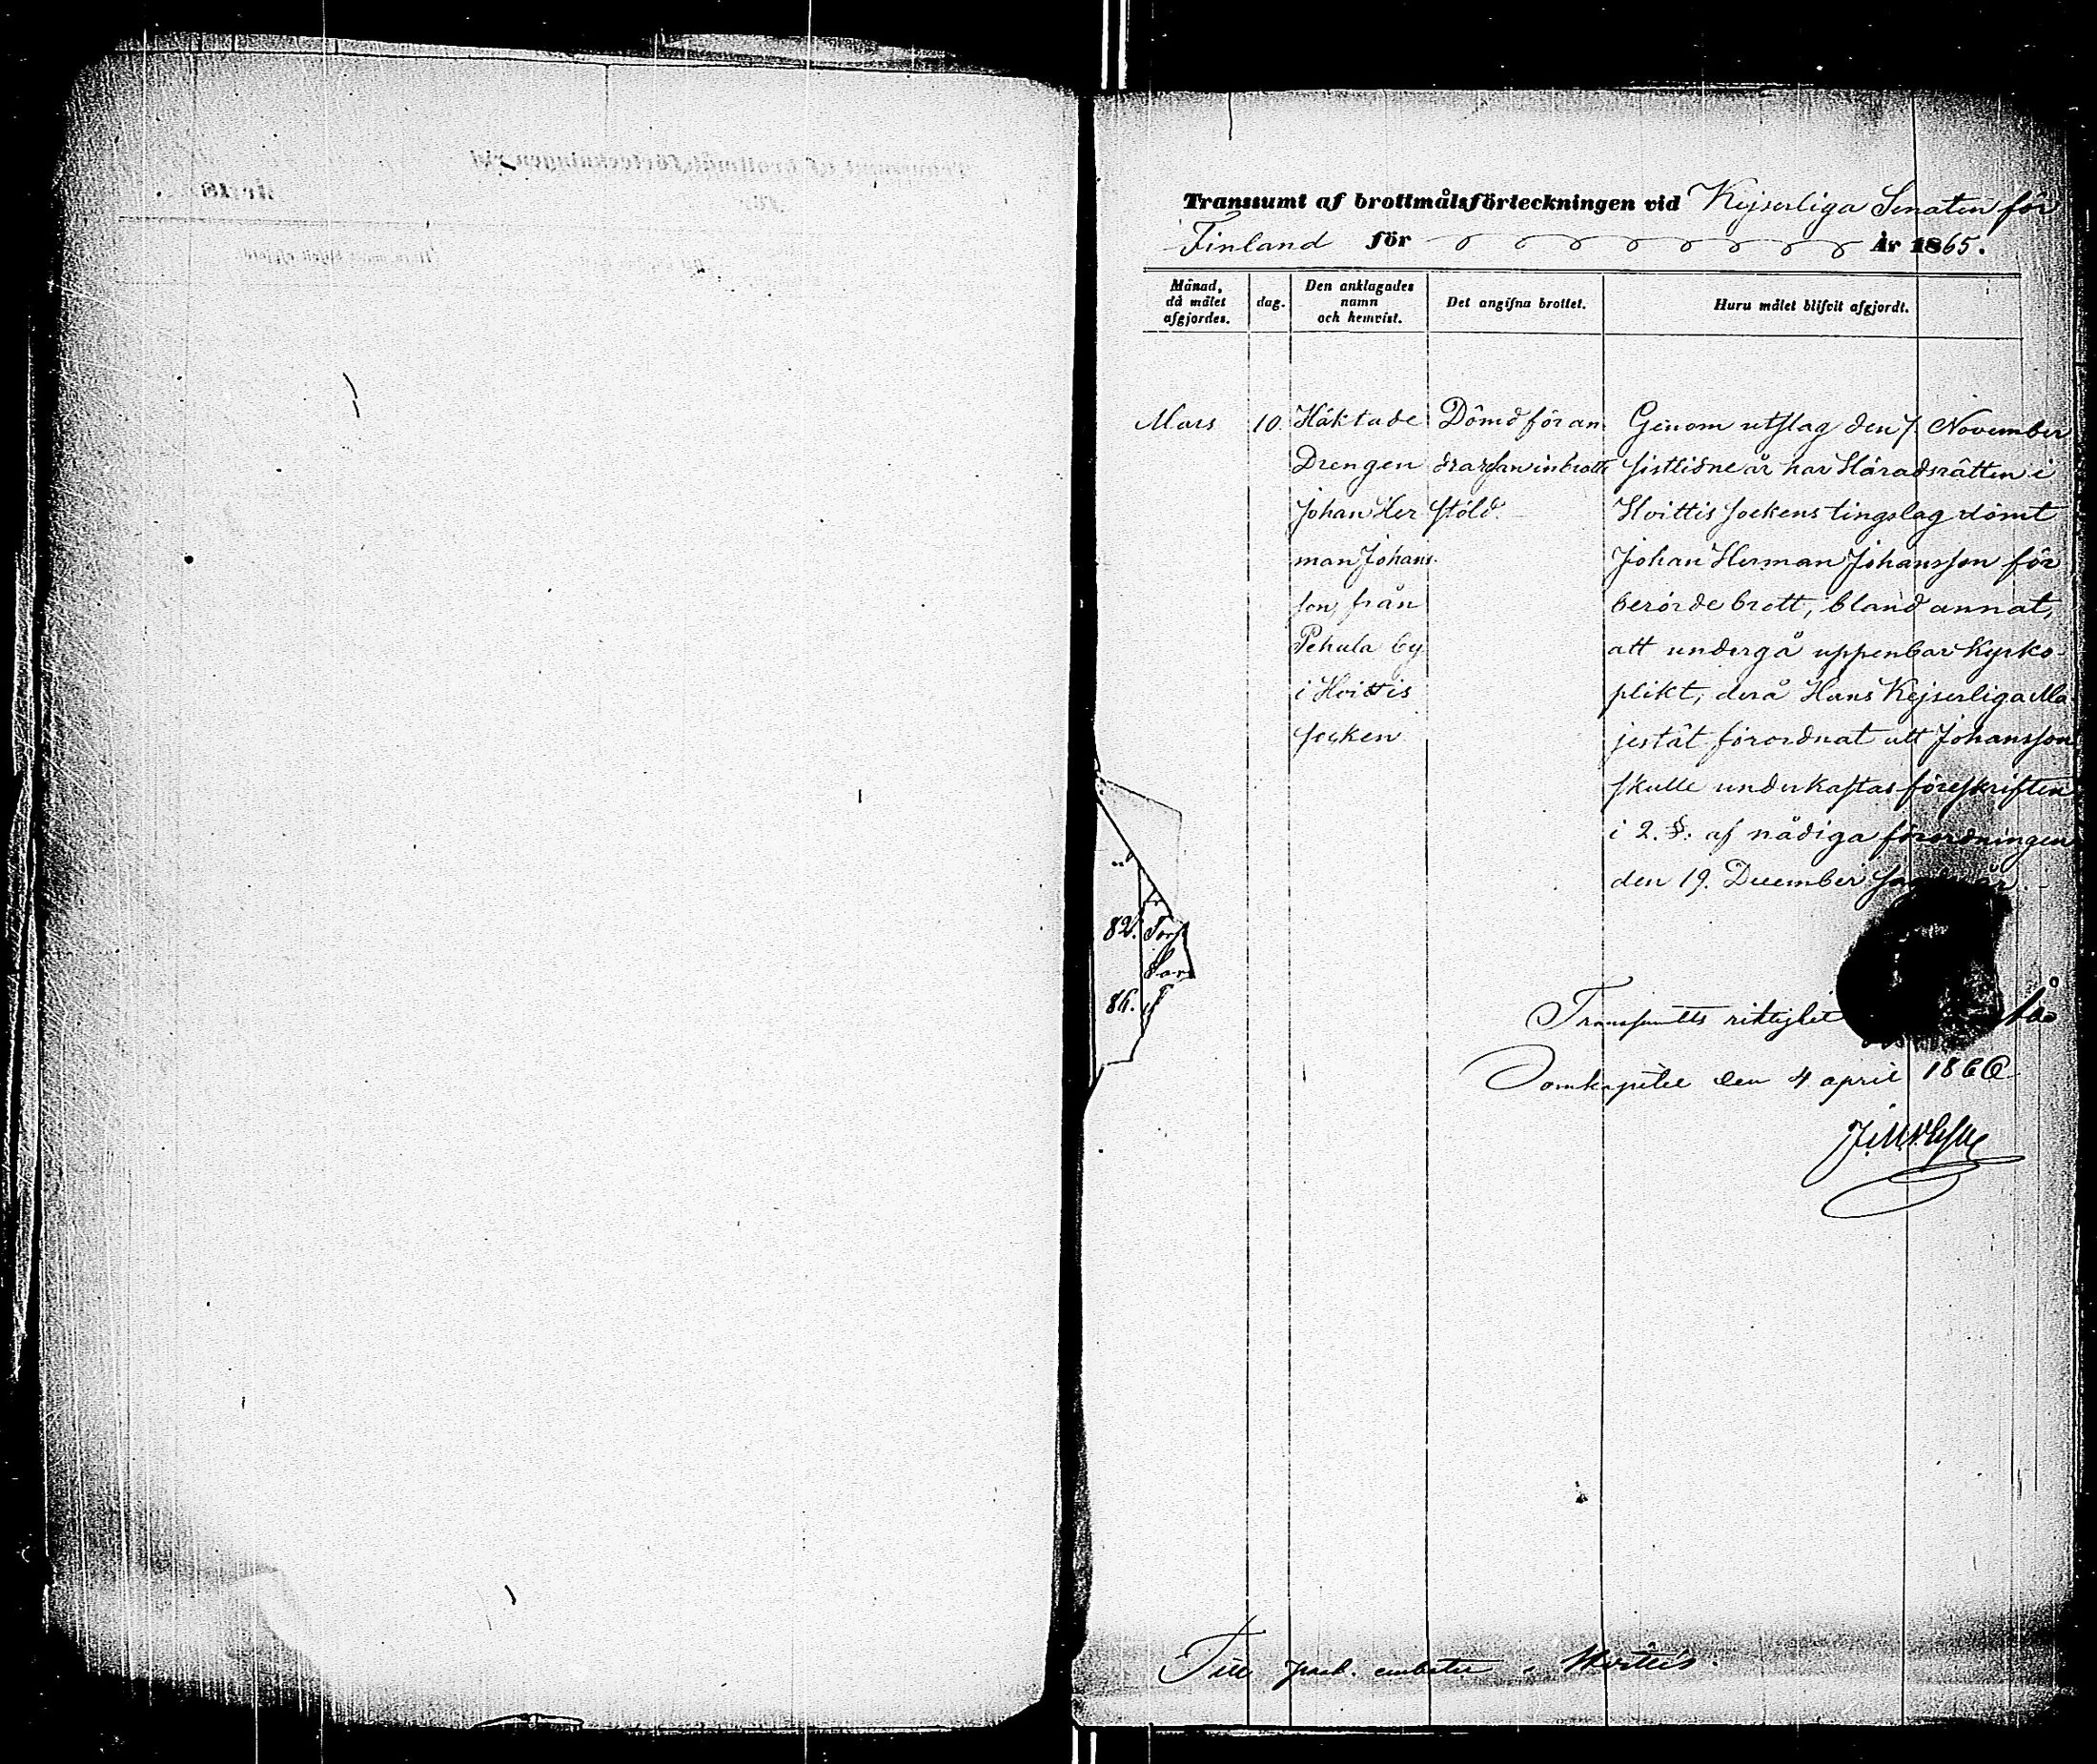 Transsumt af brottmålsförteckningen vid Kejserliga Senaten för
Finland för År 1865.
Månad, då målet afgjordes.
dag.
Den anklagades namn och hemvist.
Det angifna brottet.
Huru målet blifvit afgjordt.
Mars
10.
Häktade
Drengen
Johan Her
man Johans
son, från
Pehula by
i Hvittis
socken
Dömd för an
dra resan inbrotts
stöld.
Genom utslag den 7 November
sistlidne år har Häradsrätten i
Hvittis sockens tingslag dömt
Johan Herman Johansson för
berörde brott, bland annat,
att undergå uppenbar Kyrko-
plikt, derå Hans Kejserliga Ma
jestät förordnat att Johansson
skulle underkastas föreskriften
i 2. §. af nådiga förordningen
den 19. December år.
82.
86.
Transsumtets riktighet
Domkapitel den 4 april 1866
Till past. embetet i Hvittis.